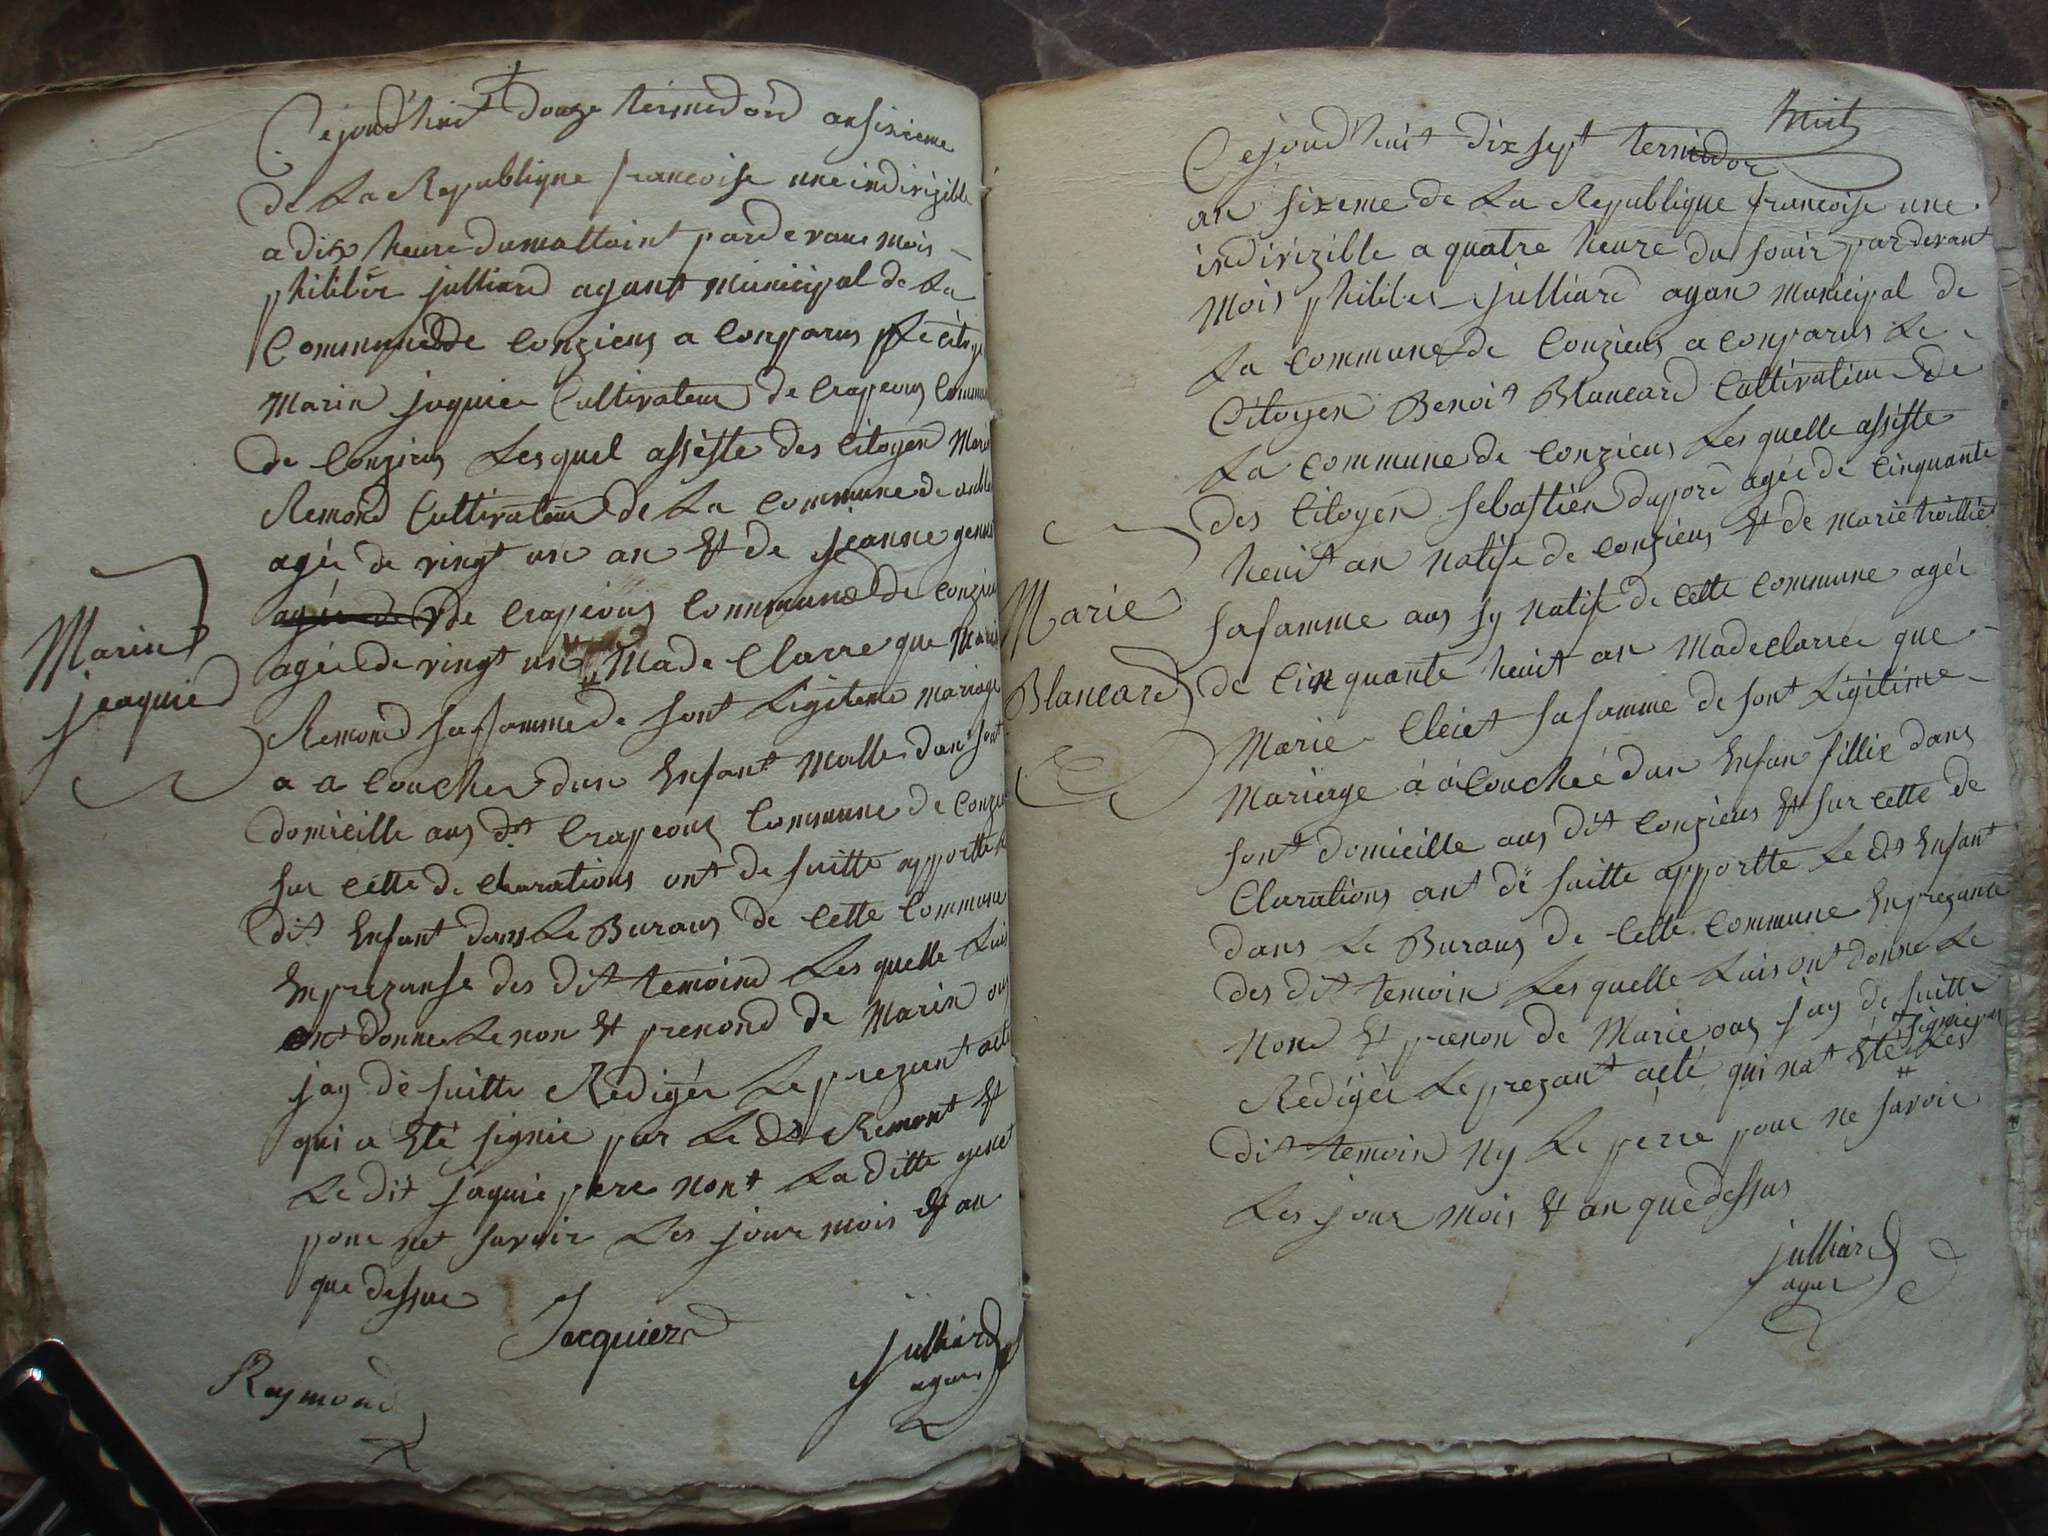 Cejourd'huit douze termedord ansixieme
de La Republique francoise une indivizible
a dix heure dumattaint pardevans mois
philiber julliard agant municipal de La
Commune de Conzieus a Conparus Le citoye
Marin jaquier Cultivateur de Crapeous Commune
de Conzieus Lesquel assiste des Citoyen Marin
Remond Cultivateur de La Commune de
agée de vingt un an & de jeanne genet
agée de de Crapeous Commune de Conzieu
agée de vingt un Made Clarre que Marie
Remond safamme de sont Legiteme mariage
a a Coucher dun Enfant Malle dan sont
domicille aus dt Crapeous Commune de Conzieu
sur Cette de Claurations ont de suitte apportte Le
dit Enfant dans Le Buraus de Cette Commune
Enprezanse des dit temoind Les quelle Luis
ont donne Le non & prenond de Marin ou
jay de suitte Redigér Le prezant acte
qui a Eté signie par Le dt Remont &
Le dit jaquie pere nont La ditte genet
pour net savoir Les jour mois & an
que dessue
Jacquierd
Raymond
julliard
agant
Marin
jeaquier
huit
Cejourd'huit dix sept termidor
an sixeme de La Republique francoise une
indivizible a quatre heure du souir pardevant
Mois philiber julliard agan municipal de
La Commune de Conzieus a Conparus Le
Citoyen Benoit Blancard Cultivateur de
La Commune de Conzieus Les quelle assiste
des Citoyen sebastien dupord agée de Cinquante
heuit an natife de Conzieus & de marie troillier
safamme aus sy natife de Cette Commune agée
de Cinquante heuit an Made Clarrée que
Marie Cleiet safamme de sont Légitime
Mariage à à Couchée dun Enfan fillie dans
sont domicille aus dit Conzieus & sur Cette de
Clarations ant de suitte apportte Le dt Enfant
dans Le Buraus de Cette Commune Enprezance
des dit temoin Les quelle Luis ont donne Le
Nond & prenon de Marie oas jay de suitte
Rediger Le prezant acté qui nat Eté signie par Les
dit temoin Ny Le perre pour ne savoir
Les jour mois & an que dessus
julliard
agant
Marie
Blancard